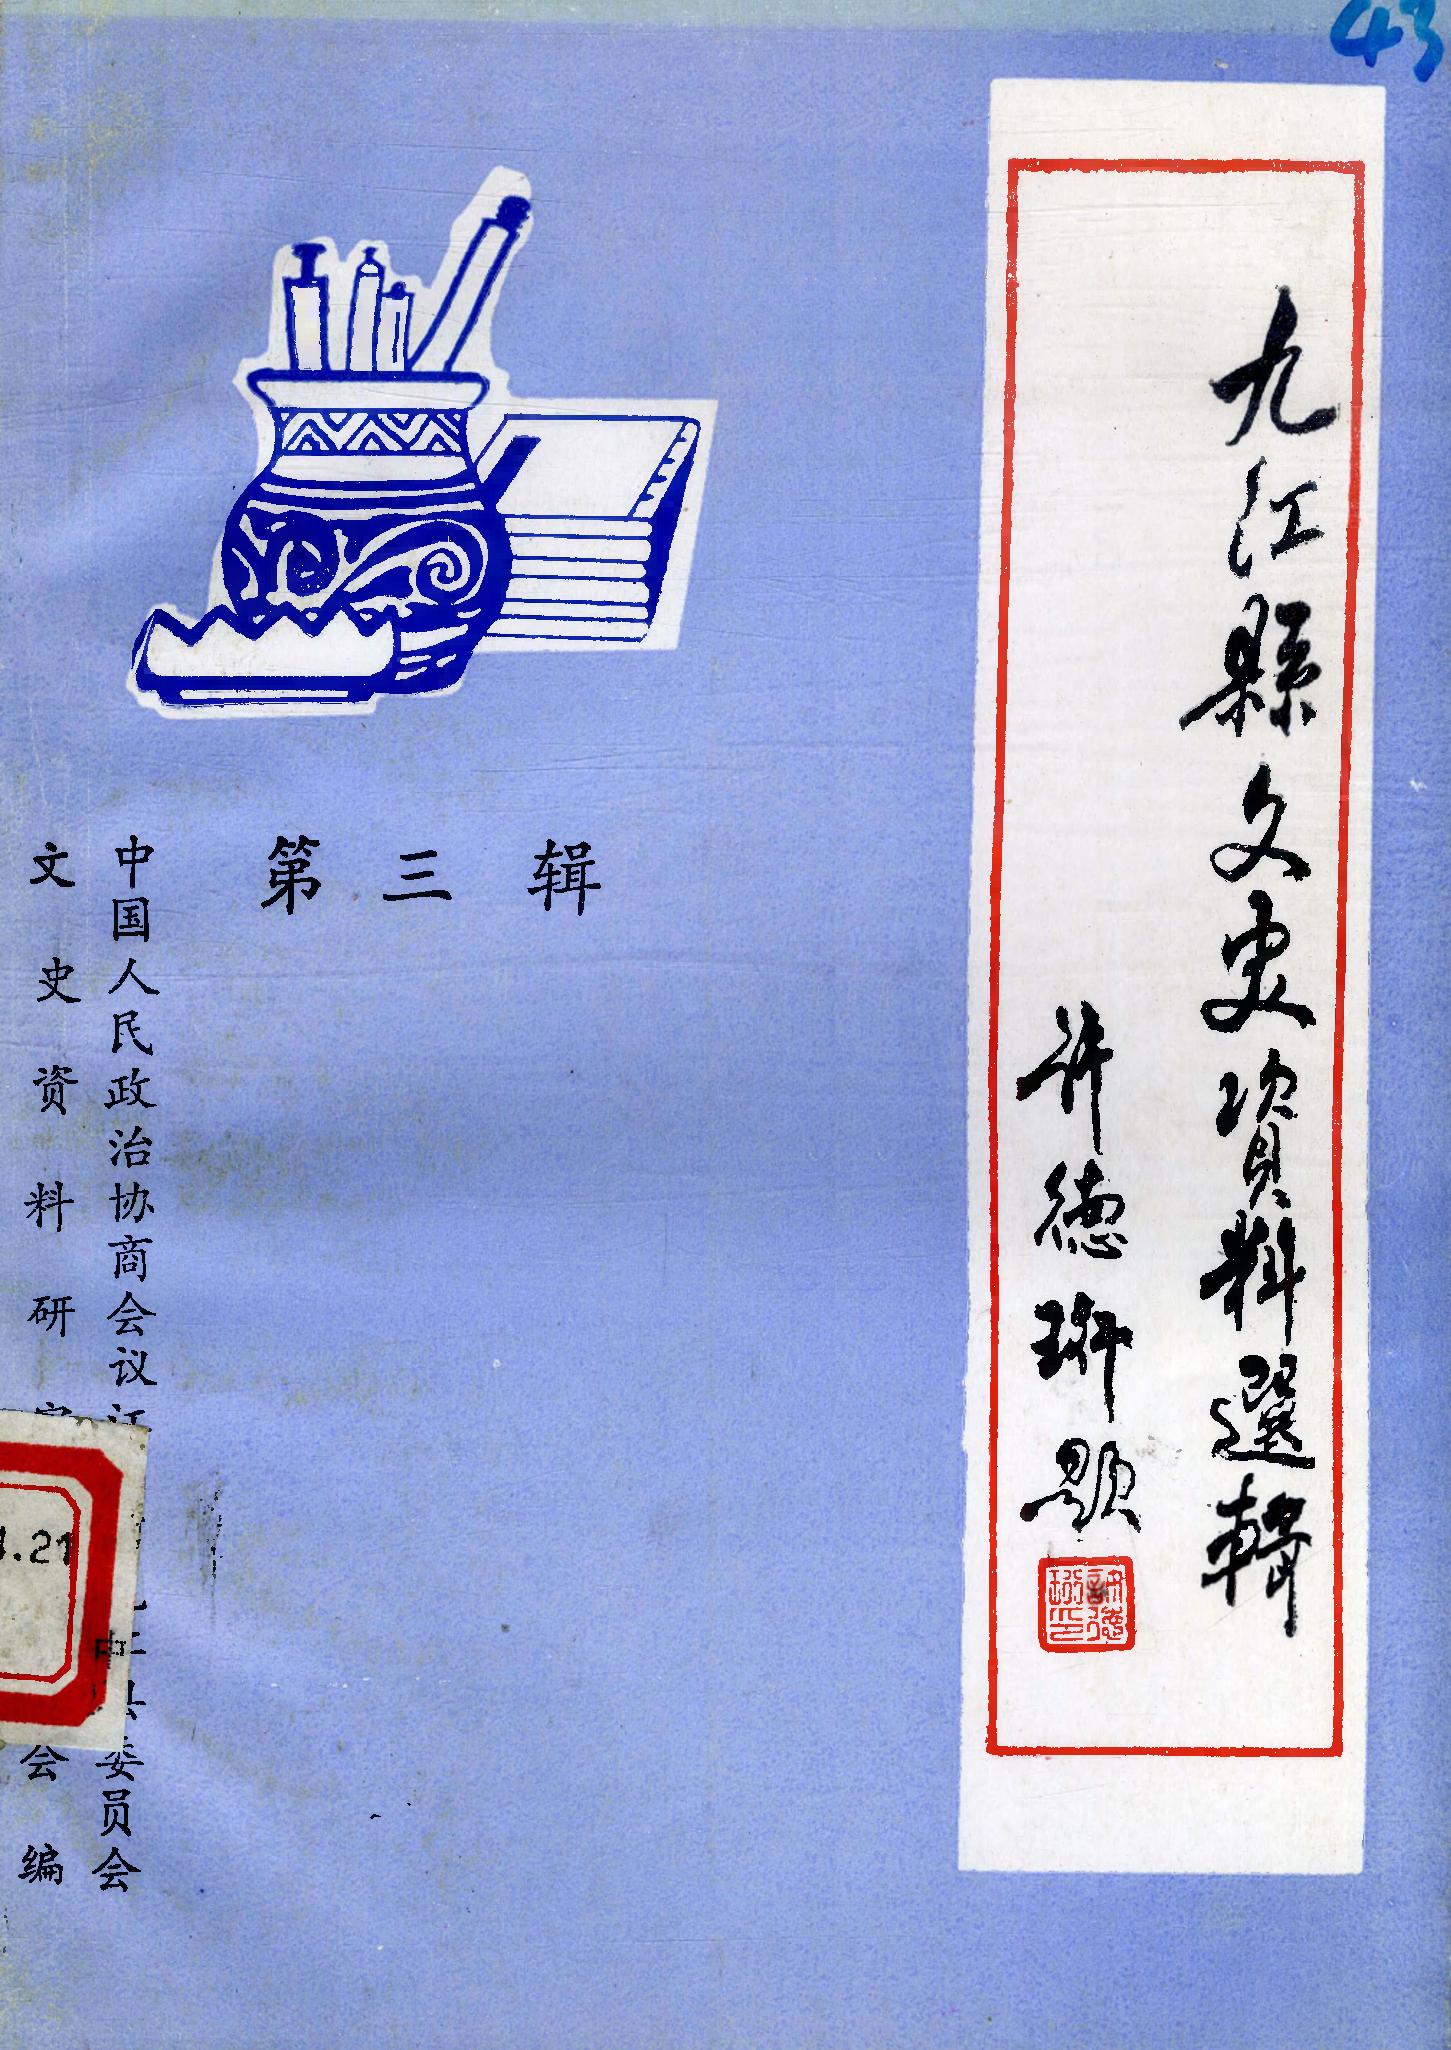 43
九江縣文史資料選輯
許德珩題
許德珩印
第三辑
中国人民政治协商会议江 九江县委员会
文史资料研究 会编
.21